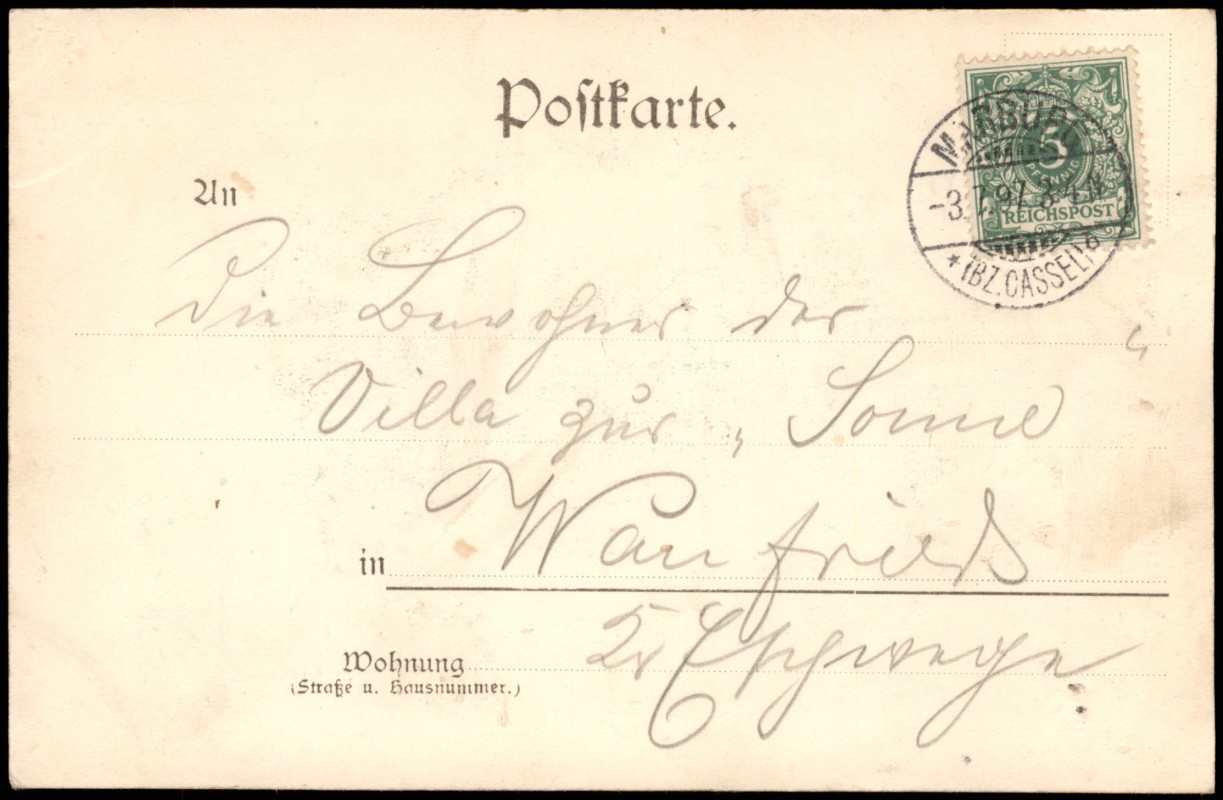 Postkarte.
5
PFENNIG
REICHSPOST
MARBURG
-3.7.97. 3-4 N.
* (BZ. CASSEL) a
An
Die Bewohner der
Villa zur „Sonne“
in Wanfried
Kr Eschwege
Wohnung
(Straße u. Hausnummer.)